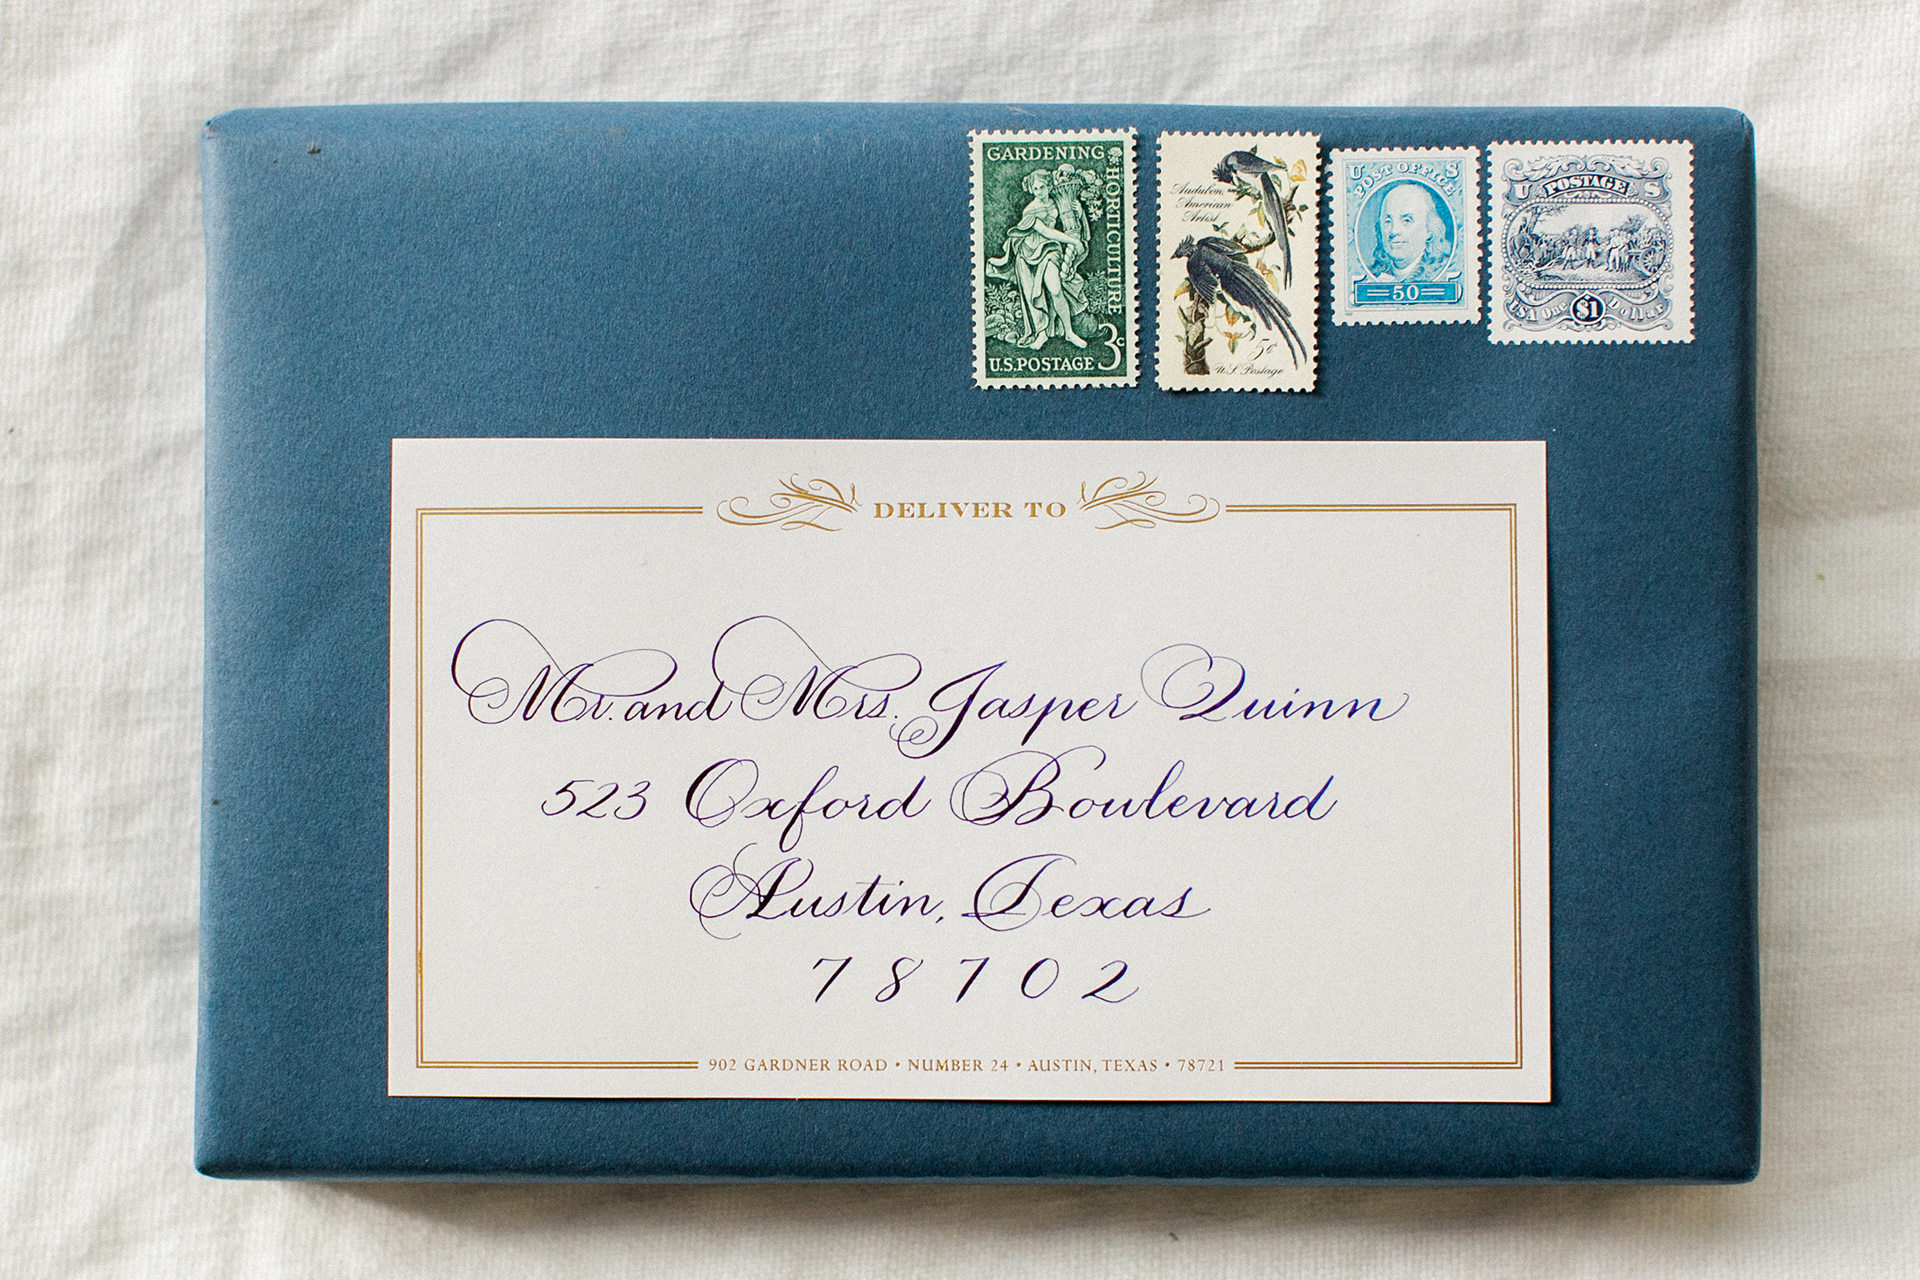 GARDENING HORTICULTURE
U.S. POSTAGE 3c
Audubon,
American
Artist
5¢
U.S. Postage
U S
POST OFFICE
50
U POSTAGE S
USA One $1 Dollar
DELIVER TO
Mr. and Mrs. Jasper Quinn
523 Oxford Boulevard
Austin, Texas
78702
902 GARDNER ROAD • NUMBER 24 • AUSTIN, TEXAS • 78721